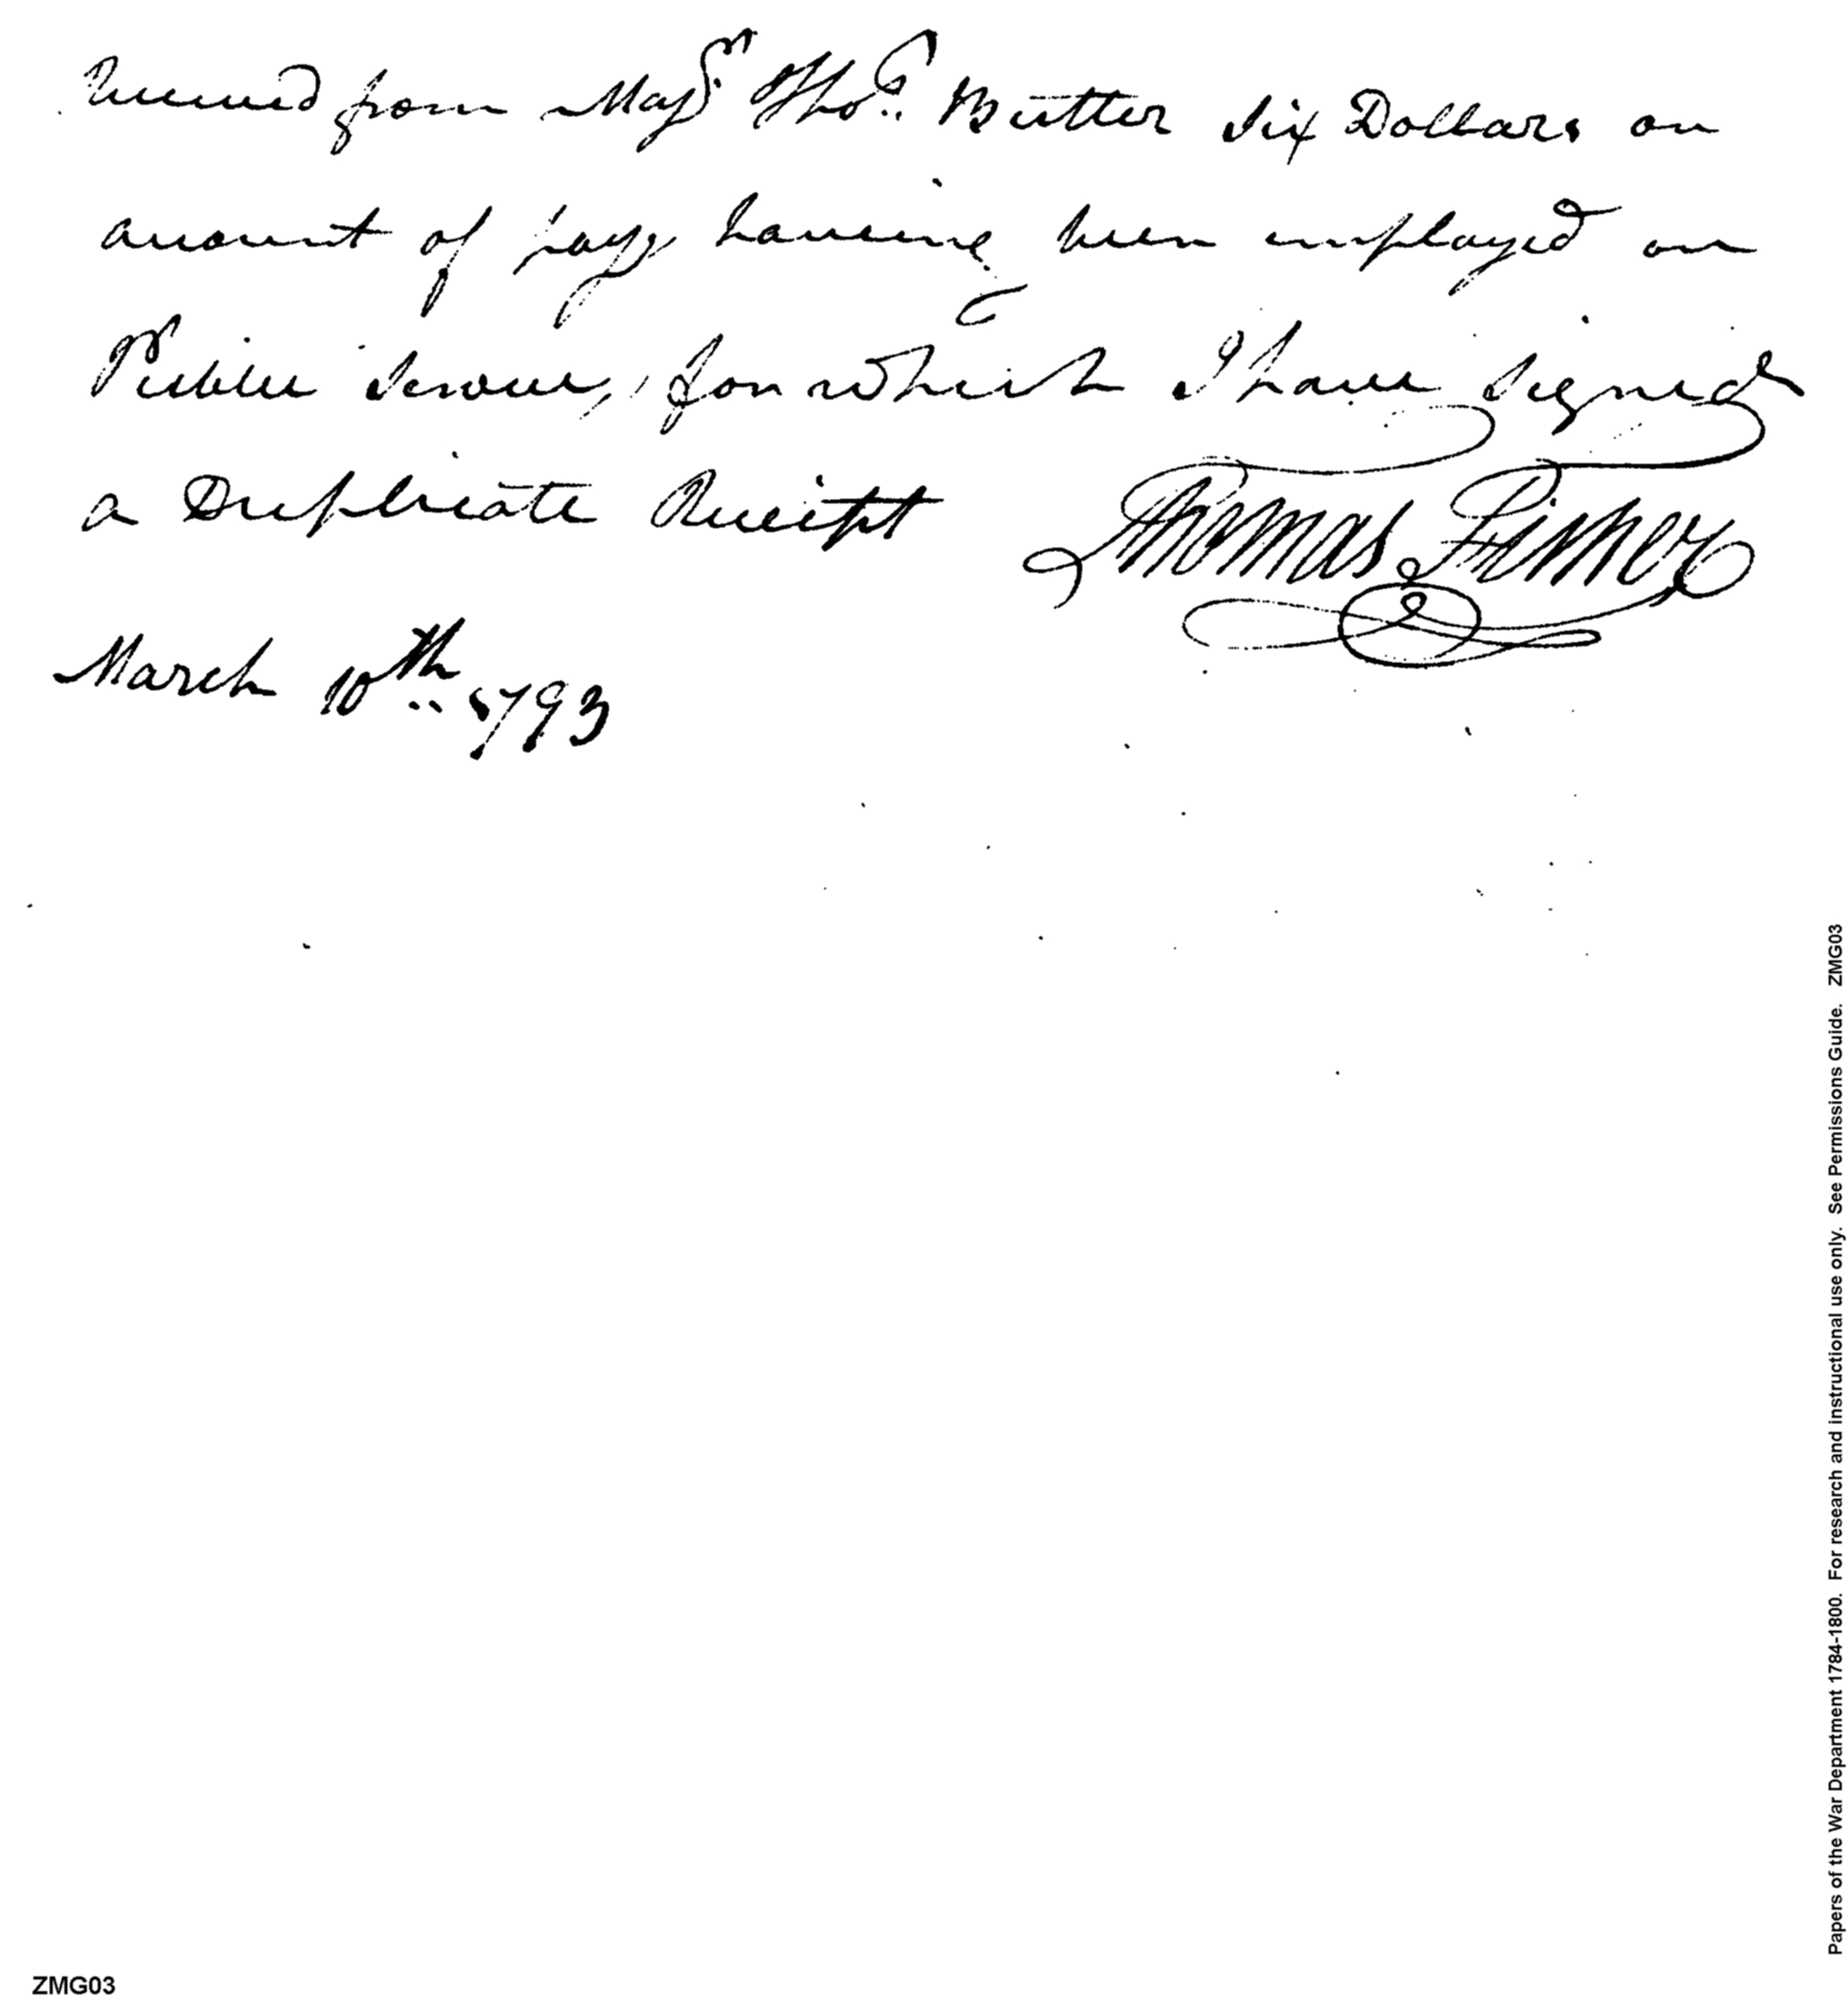 Received from Majr. Thos. Butler Six Dollars on
account of pay, having been employed on
Public Service, for which I have signed
a Duplicate Receipt Thomas
March 10th 1793
Papers of the War Department 1784-1800. For research and instructional use only. See Permissions Guide. ZMG03
ZMG03